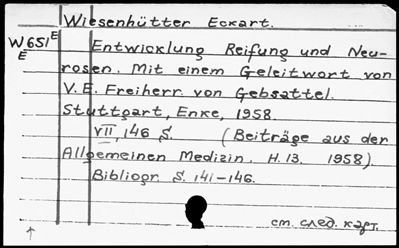 Wiesenhütter Eckart.
W651E
E
Entwicklung Reifung und Neu-
rosen. Mit einem Geleitwort von
V.E. Freiherr von Gebsattel.
Stuttgart, Enke, 1958.
VII, 146 S. (Beiträge aus der
Allgemeinen Medizin. H.13. 1958)
Bibliogr S. 141-146.
см. след. карт.